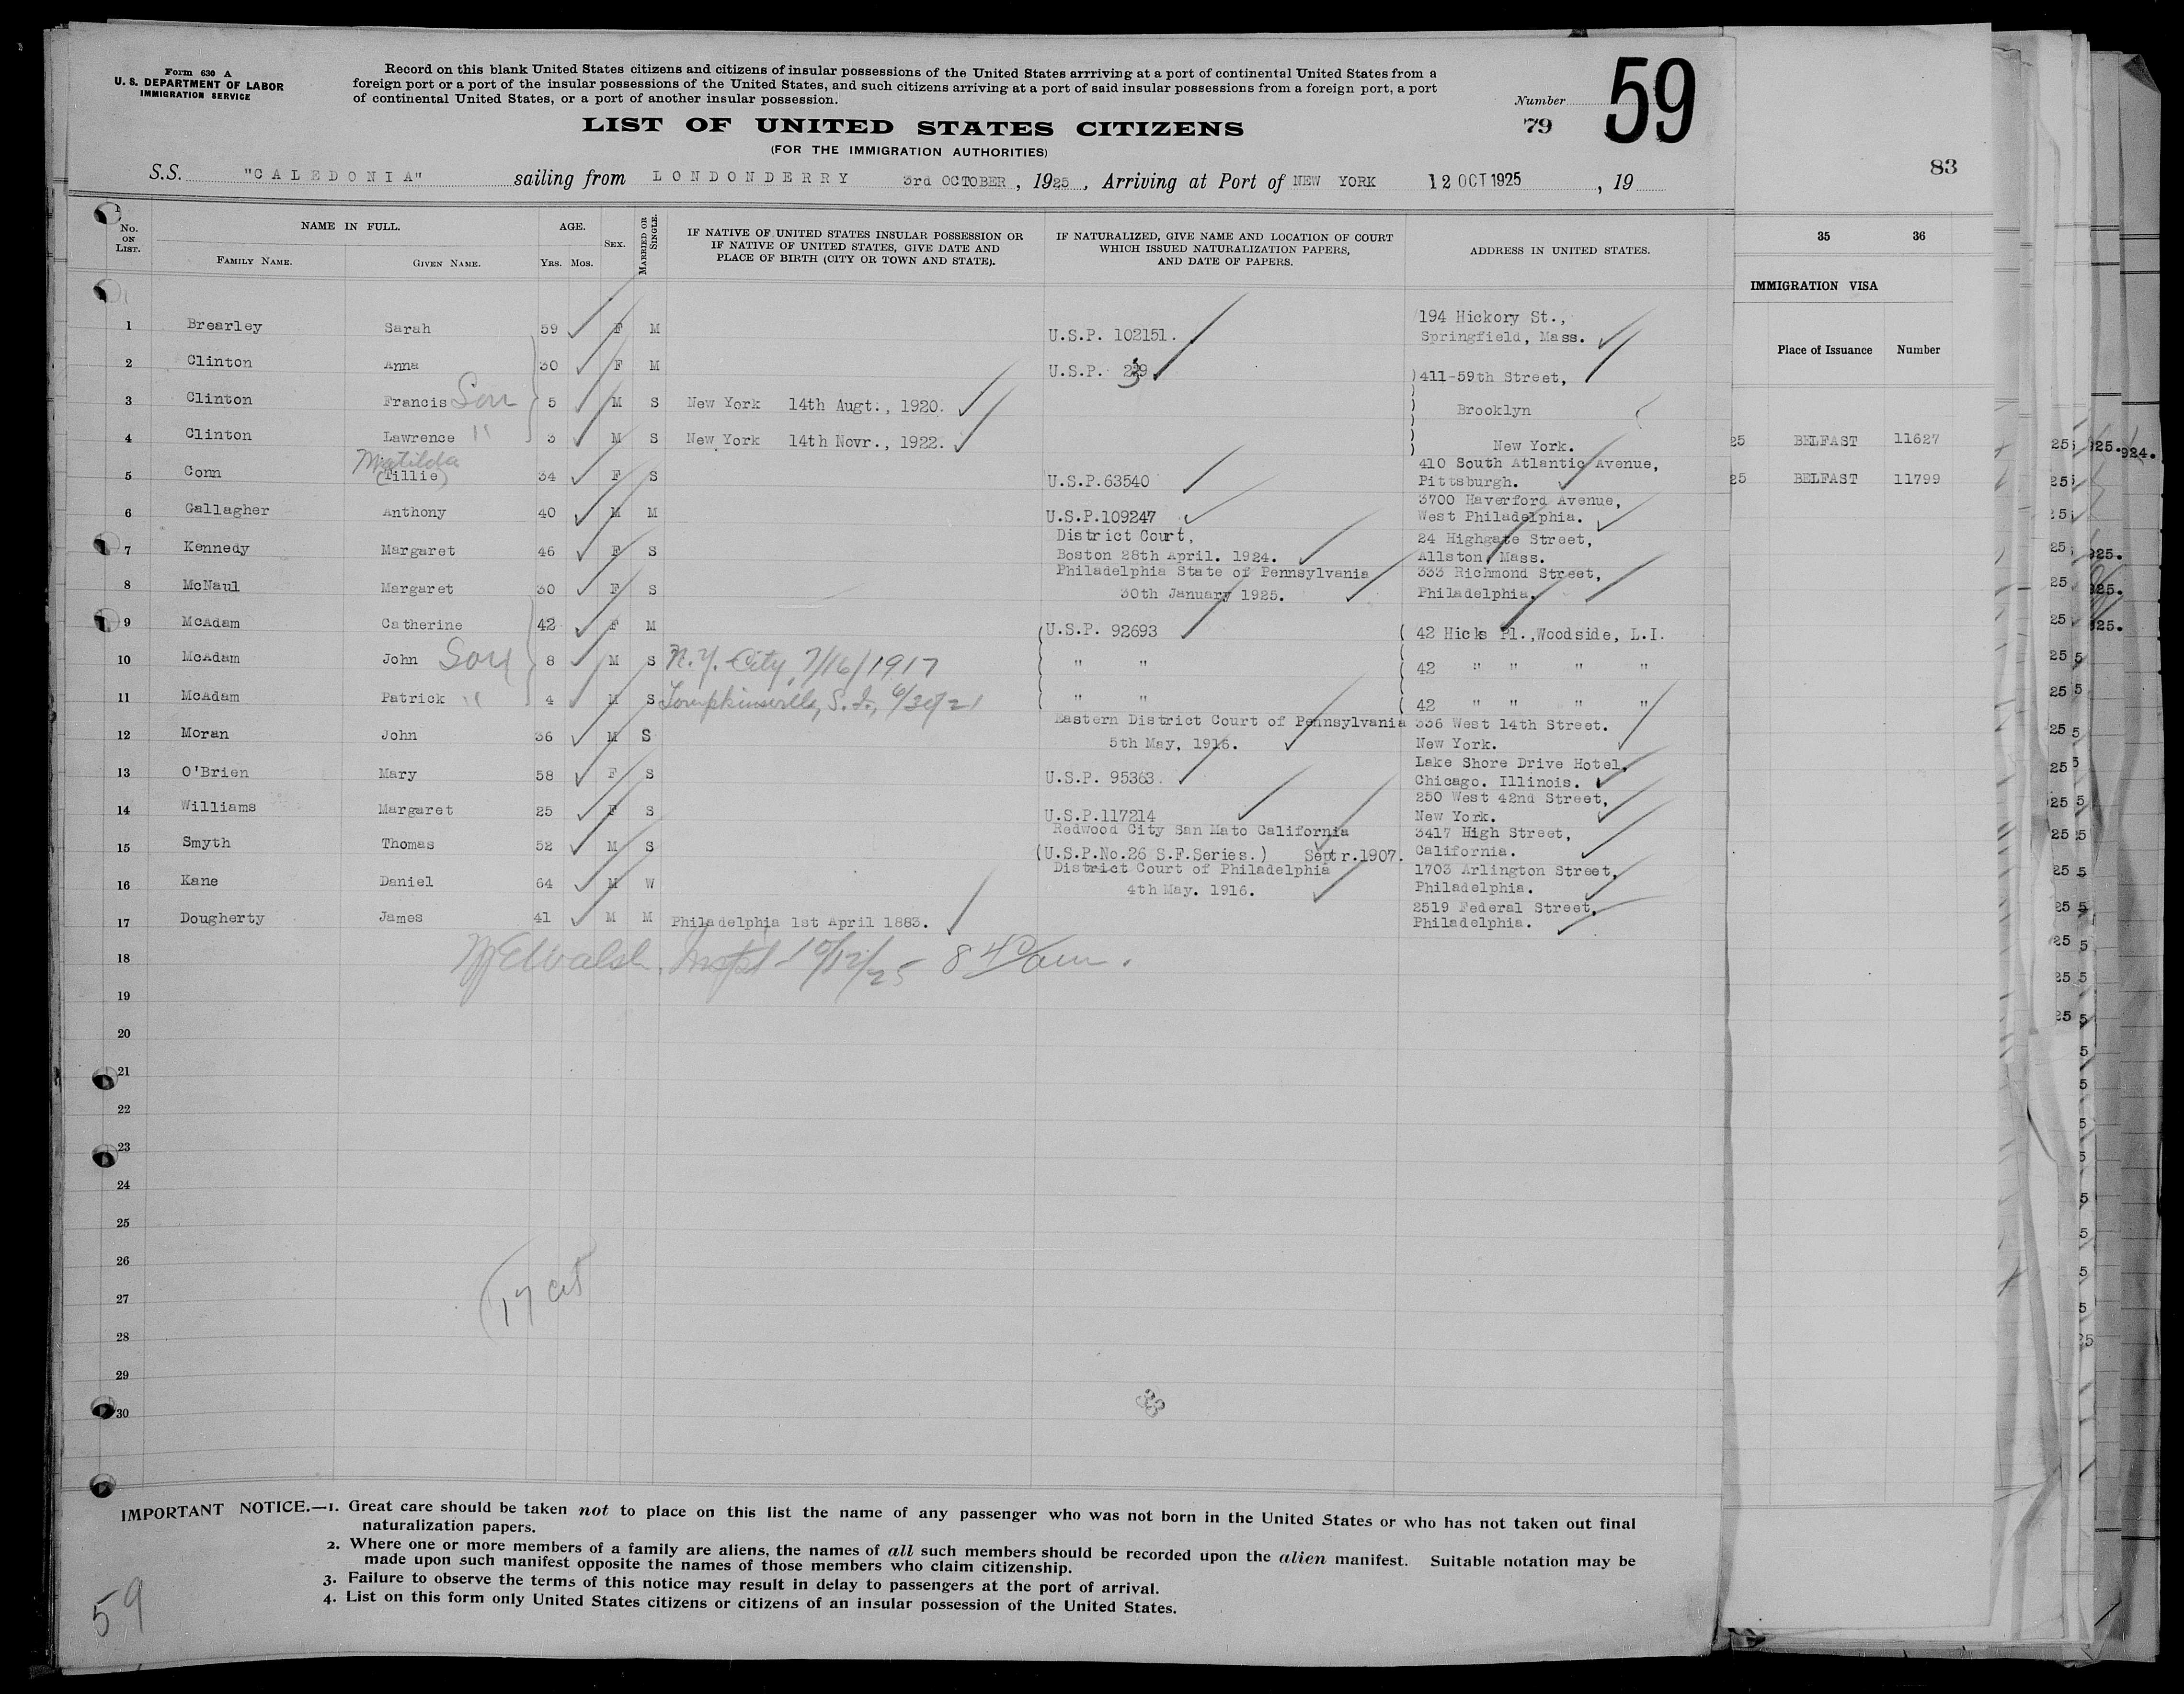 Form 630 A
U. S. DEPARTMENT OF LABOR
IMMIGRATION SERVICE
Record on this blank United States citizens and citizens of insular possessions of the United States arrriving at a port of continental United States from a
foreign port or a port of the insular possessions of the United States, and such citizens arriving at a port of said insular possessions from a foreign port, a port
of continental United States, or a port of another insular possession.
Number 59
79
LIST OF UNITED STATES CITIZENS
(FOR THE IMMIGRATION AUTHORITIES)
S.S. "CALEDONIA" sailing from LONDONDERRY 3rd OCTOBER, 1925, Arriving at Port of NEW YORK 12 OCT 1925, 19
83
No. ON LIST.
NAME IN FULL.
FAMILY NAME. GIVEN NAME.
AGE.
YRS. MOS.
SEX.
MARRIED OR SINGLE.
IF NATIVE OF UNITED STATES INSULAR POSSESSION OR
IF NATIVE OF UNITED STATES, GIVE DATE AND
PLACE OF BIRTH (CITY OR TOWN AND STATE).
IF NATURALIZED, GIVE NAME AND LOCATION OF COURT
WHICH ISSUED NATURALIZATION PAPERS,
AND DATE OF PAPERS.
ADDRESS IN UNITED STATES.
35 36
IMMIGRATION VISA
Place of Issuance Number
1 Brearley Sarah 59 F M U.S.P. 102151. 194 Hickory St.,
Springfield, Mass.
2 Clinton Anna 30 F M U.S.P. 411-59th Street,
3 Clinton Francis Son 5 M S New York 14th Augt., 1920. Brooklyn
4 Clinton Lawrence " 3 M S New York 14th Novr., 1922. New York.
25 BELFAST 11627
Matilda
5 Conn (Tillie) 34 F S U.S.P.63540 410 South Atlantic Avenue,
Pittsburgh.
25 BELFAST 11799
6 Gallagher Anthony 40 M M U.S.P.109247 3700 Haverford Avenue,
West Philadelphia.
7 Kennedy Margaret 46 F S District Court, 24 Highgate Street,
Boston 28th April. 1924. Allston, Mass.
8 McNaul Margaret 30 F S Philadelphia State of Pennsylvania 333 Richmond Street,
30th January 1925. Philadelphia.
9 McAdam Catherine 42 F M U.S.P. 92693 42 Hicks Pl.,Woodside, L.I.
10 McAdam John Son 8 M S N.Y. City, 7/16/1917 " " 42 " " " "
11 McAdam Patrick " 4 M S Tompkinsville, S.I., 6/30/21 " " 42 " " " "
12 Moran John 36 M S Eastern District Court of Pennsylvania 336 West 14th Street.
5th May, 1916. New York.
13 O'Brien Mary 58 F S U.S.P. 95363. Lake Shore Drive Hotel,
Chicago. Illinois.
14 Williams Margaret 25 F S U.S.P.117214 250 West 42nd Street,
New York.
15 Smyth Thomas 52 M S Redwood City San Mato California 3417 High Street,
(U.S.P.No.26 S.F.Series.) Septr.1907. California.
16 Kane Daniel 64 M W District Court of Philadelphia 1703 Arlington Street,
4th May. 1916. Philadelphia.
17 Dougherty James 41 M M Philadelphia 1st April 1883. 2519 Federal Street,
Philadelphia.
18 Walsh, Inspt 10/12/25 8 40 am.
19
20
21
22
23
24
25
26
27
17 cit
28
29
30
IMPORTANT NOTICE.—1. Great care should be taken not to place on this list the name of any passenger who was not born in the United States or who has not taken out final
naturalization papers.
2. Where one or more members of a family are aliens, the names of all such members should be recorded upon the alien manifest. Suitable notation may be
made upon such manifest opposite the names of those members who claim citizenship.
3. Failure to observe the terms of this notice may result in delay to passengers at the port of arrival.
4. List on this form only United States citizens or citizens of an insular possession of the United States.
59